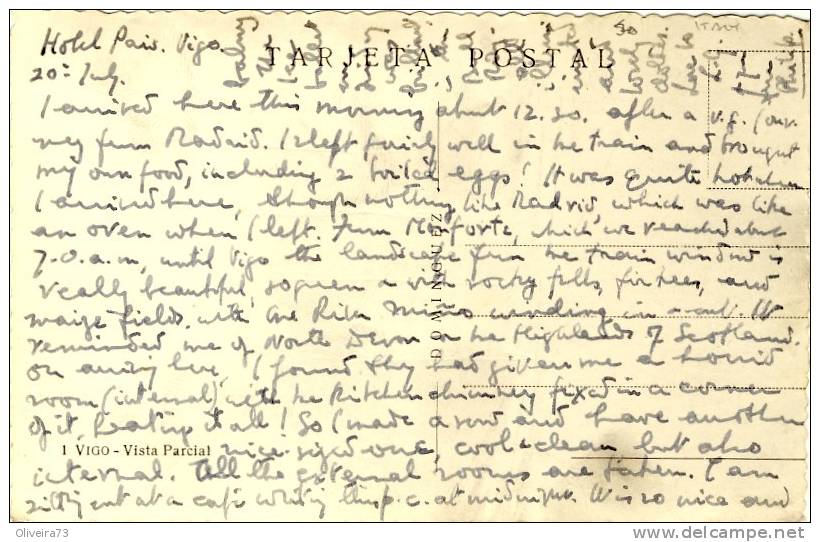 Hotel Vigo.
20th July.
TARJETA POSTAL
I arrived here this morning about 12.30. after a v.g. jour-
ney from Madrid. I left fairly well in the train and brought
my own food, including 2 boiled eggs! It was quite hot when
I arrived here, though nothing like Madrid, which was like
an oven when I left. From Monforte, which we reached about
7-0. a.m, until Vigo the landscape from the train window is
really beautiful, so green with rocky hills, fir trees, and
maize fields, with the River Miño winding in & out. It
reminded me of North Devon or the Highlands of Scotland.
On arriving here, I found they had given me a horrid
room (internal) with the kitchen chimney fixed in a corner
of it, heating it all! So I made a row and have another
nice sized one, cool & clean but also
internal. Till the external rooms are taken. I am
sitting out at a café writing this p.c. at midnight. It is so nice and
DOMINGUEZ
1 VIGO - Vista Parcial
Oliveira73
http://www.delcampe.net